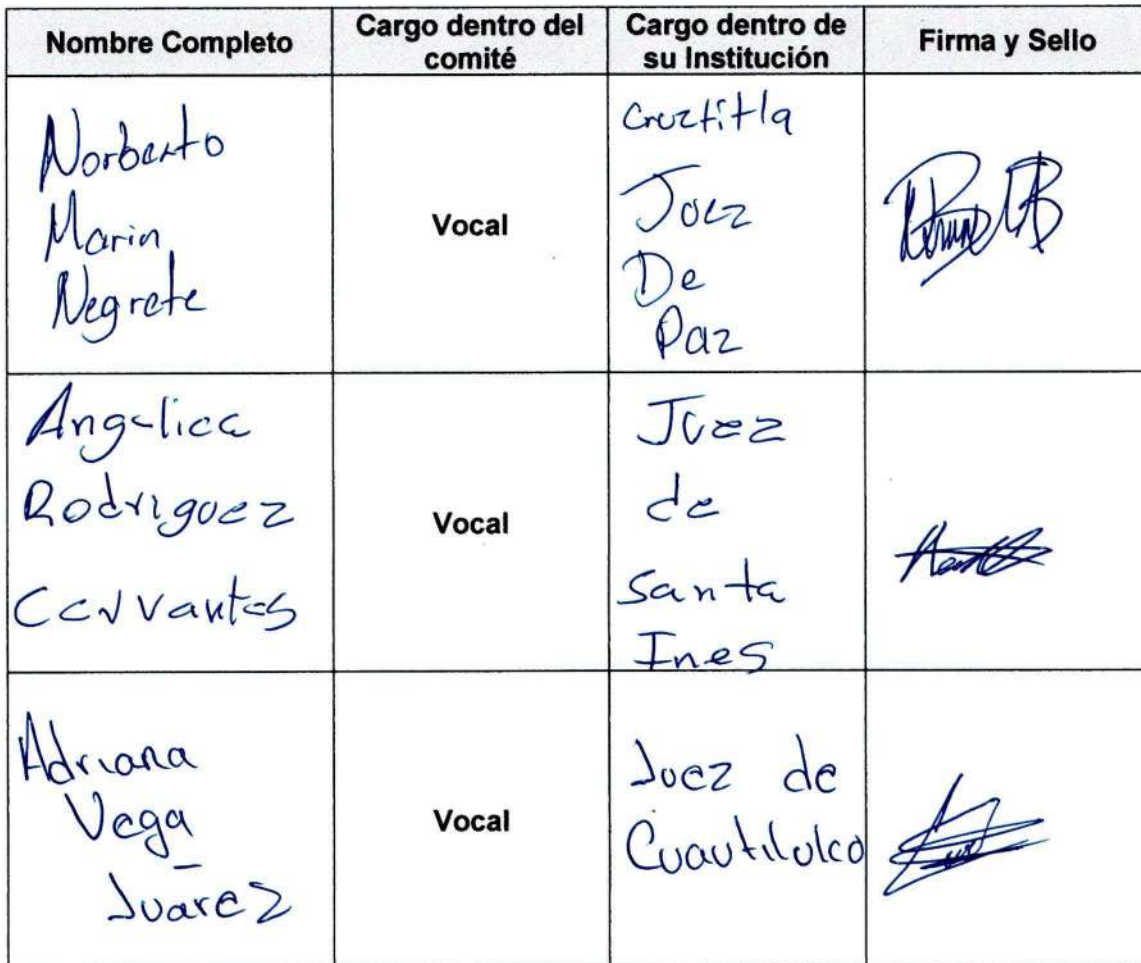 Nombre Completo
Cargo dentro del
comité
Cargo dentro de
su Institución
Firma y Sello
Norberto
Marin
Negrete
Vocal
Cruztitla
Juez
De
Paz
Angelica
Rodriguez
Cervantes
Vocal
Juez
de
Santa
Ines
Adriana
Vega
Juarez
Vocal
Juez de
Cuautilulco